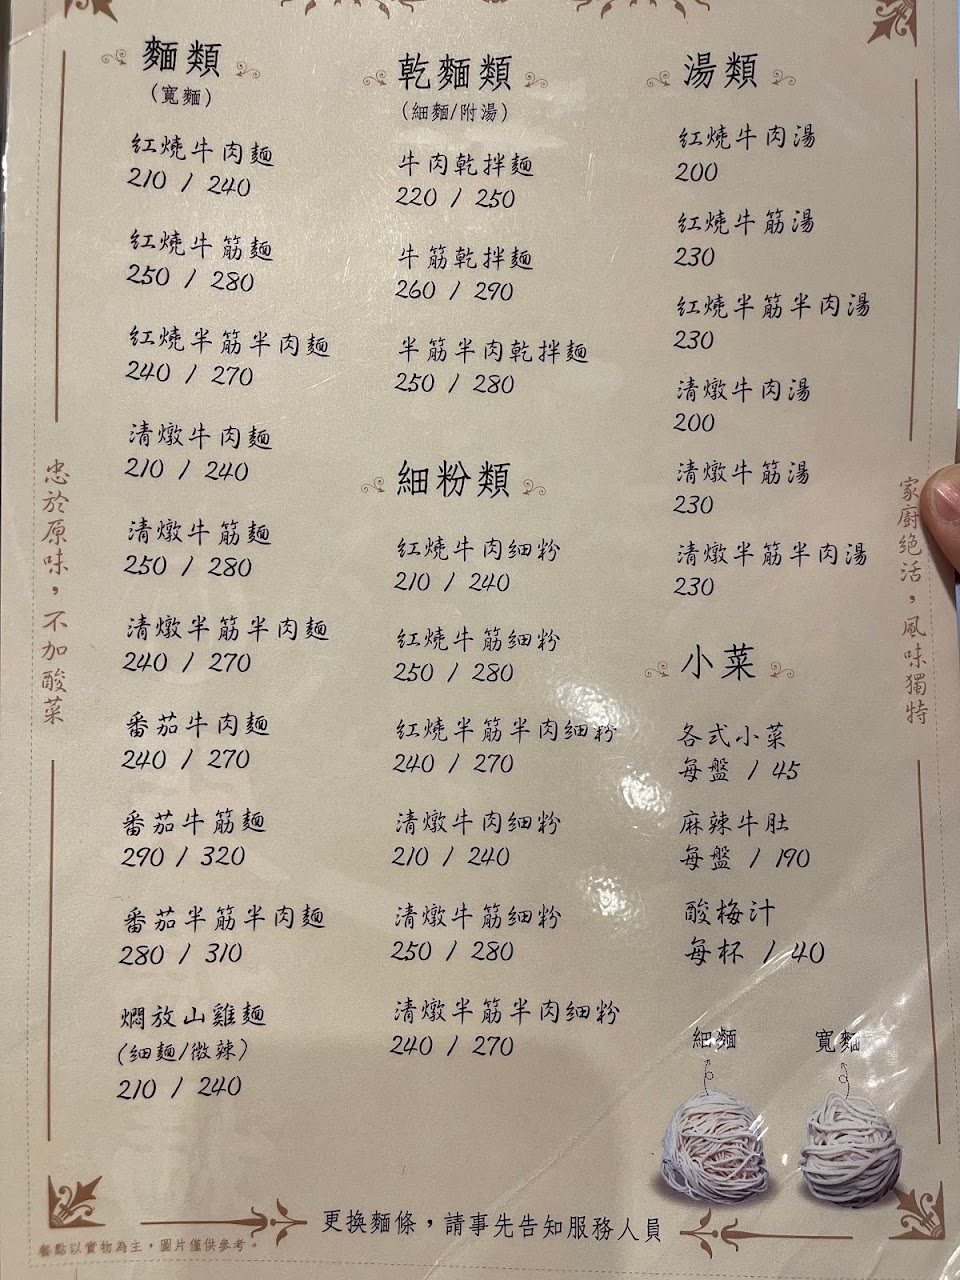 麵類
(寬麵)
紅燒牛肉麵
210 / 240
紅燒牛筋麵
250 / 280
紅燒半筋半肉麵
240 / 270
清燉牛肉麵
210 / 240
清燉牛筋麵
250 / 280
清燉半筋半肉麵
240 / 270
番茄牛肉麵
240 / 270
番茄牛筋麵
290 / 320
番茄半筋半肉麵
280 / 310
燜放山雞麵
(細麵/微辣)
210 / 240
乾麵類
(細麵/附湯)
牛肉乾拌麵
220 / 250
牛筋乾拌麵
260 / 290
半筋半肉乾拌麵
250 / 280
細粉類
紅燒牛肉細粉
210 / 240
紅燒牛筋細粉
250 / 280
紅燒半筋半肉細粉
240 / 270
清燉牛肉細粉
210 / 240
清燉牛筋細粉
250 / 280
清燉半筋半肉細粉
240 / 270
湯類
紅燒牛肉湯
200
紅燒牛筋湯
230
紅燒半筋半肉湯
230
清燉牛肉湯
200
清燉牛筋湯
230
清燉半筋半肉湯
230
小菜
各式小菜
每盤 / 45
麻辣牛肚
每盤 / 190
酸梅汁
每杯 / 40
細麵
寬麵
忠於原味，不加酸菜
家廚絕活，風味獨特
更換麵條，請事先告知服務人員
餐點以實物為主，圖片僅供參考。